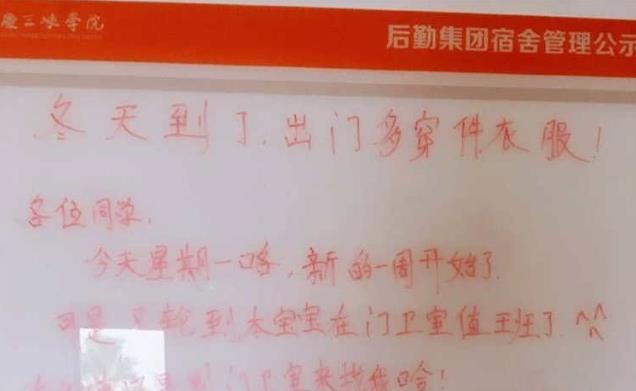 三峡学院
后勤集团宿舍管理公示
冬天到了,出门多穿件衣服!
各位同学,
今天星期一咯,新的一周开始了
可是又轮到本宝宝在门卫室值班了^^
门卫室来找我哈!